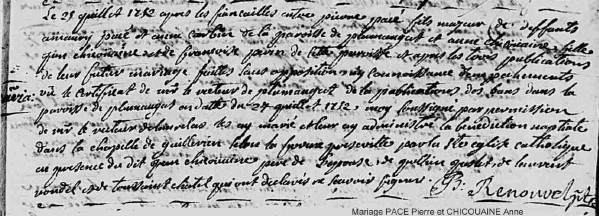 Le 29 juillet 1752 apres les fiancailles entre pierre pacé fils majeur de deffunts
amaury pacé et anne de la paroisse de plumaugat et anne chicouaine fille
jean chicouaine et de francoise de cette paroisse et apres les trois publications
de leur futur mariage faites sans opposition ny connoissance dempechements
vû le certificat de mr le recteur de plumaugat de la publications des bans dans la
paroisse de plumaugat en date du 27 juillet 1752, moy soussigné par permission
de mr le recteur de les ay marié et leur ay administré la benediction nuptiale
dans la chapelle de selon la forme prescritte par la Ste eglise catholique
en presence du dit jean chicouaine pere de lepouse de de laurent
et de toussaint chatel qui ont declarés ne scavoir signer
Renouvel ptre
Mariage PACE Pierre et CHICOUAINE Anne